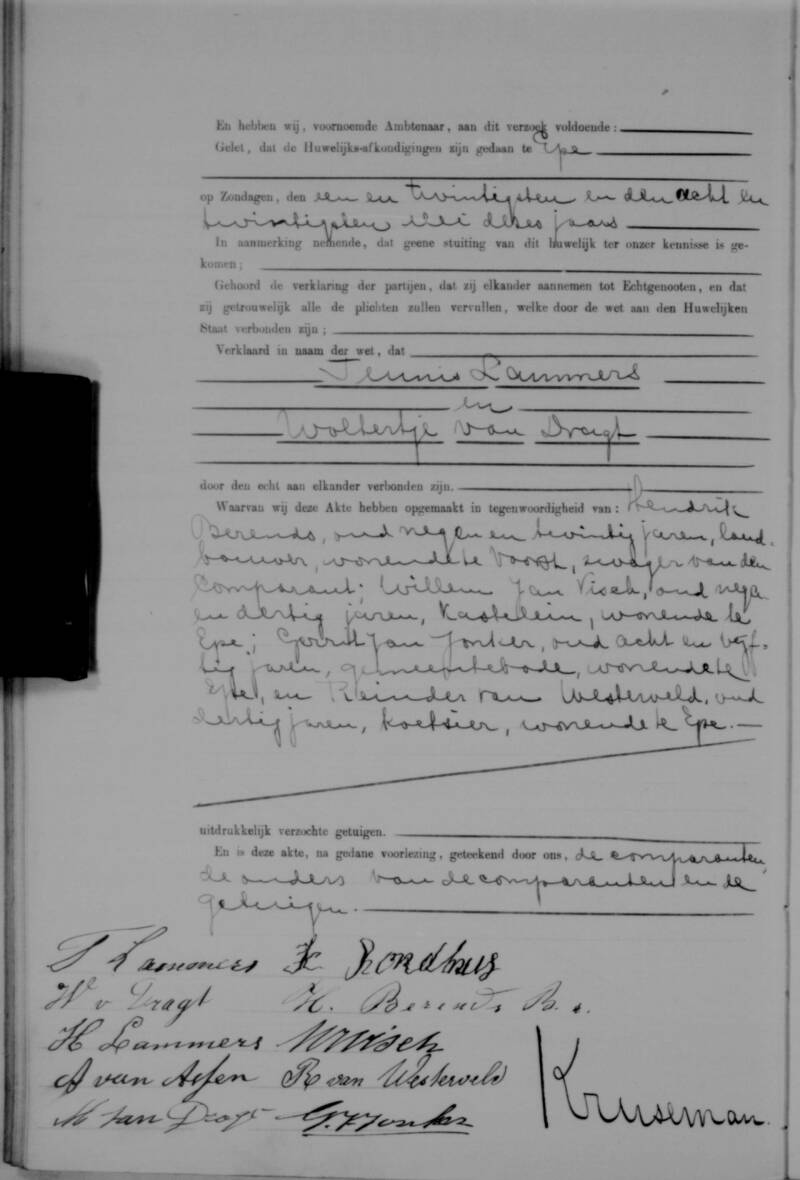 En hebben wij, voornoemde Ambtenaar, aan dit verzoek voldoende:
Gelet, dat de Huwelijks-afkondigingen zijn gedaan te Epe
op Zondagen, den een en twintigsten en den acht en
twintigsten Mei dezes jaars
In aanmerking nemende, dat geene stuiting van dit huwelijk ter onzer kennisse is ge-
komen;
Gehoord de verklaring der partijen, dat zij elkander aannemen tot Echtgenooten, en dat
zij getrouwelijk alle de plichten zullen vervullen, welke door de wet aan den Huwelijken
Staat verbonden zijn;
Verklaard in naam der wet, dat
Teunis Lammers
en
Woltertje van Dragt
door den echt aan elkander verbonden zijn.
Waarvan wij deze Akte hebben opgemaakt in tegenwoordigheid van: Hendrik
Berends, oud negen en twintig jaren, land-
bouwer, wonende te Voorst, zwager van den
Comparant; Willem Jan Visch, oud negen
en dertig jaren, Kastelein, wonende te
Epe; Gerrit Jan Jonker, oud acht en vijf-
tig jaren, gemeentebode, wonende te
Epe, en Reinder van Westerveld, oud
dertig jaren, koetsier, wonende te Epe.—
uitdrukkelijk verzochte getuigen.
En is deze akte, na gedane voorlezing, geteekend door ons, de comparanten,
de ouders van de comparanten en de
getuigen.
T Lammers
W v Dragt H. Berends B.
H Lammers WJVisch
A van Assen R van Westerveld
M van Dragt G.J.Jonker
Kruseman.